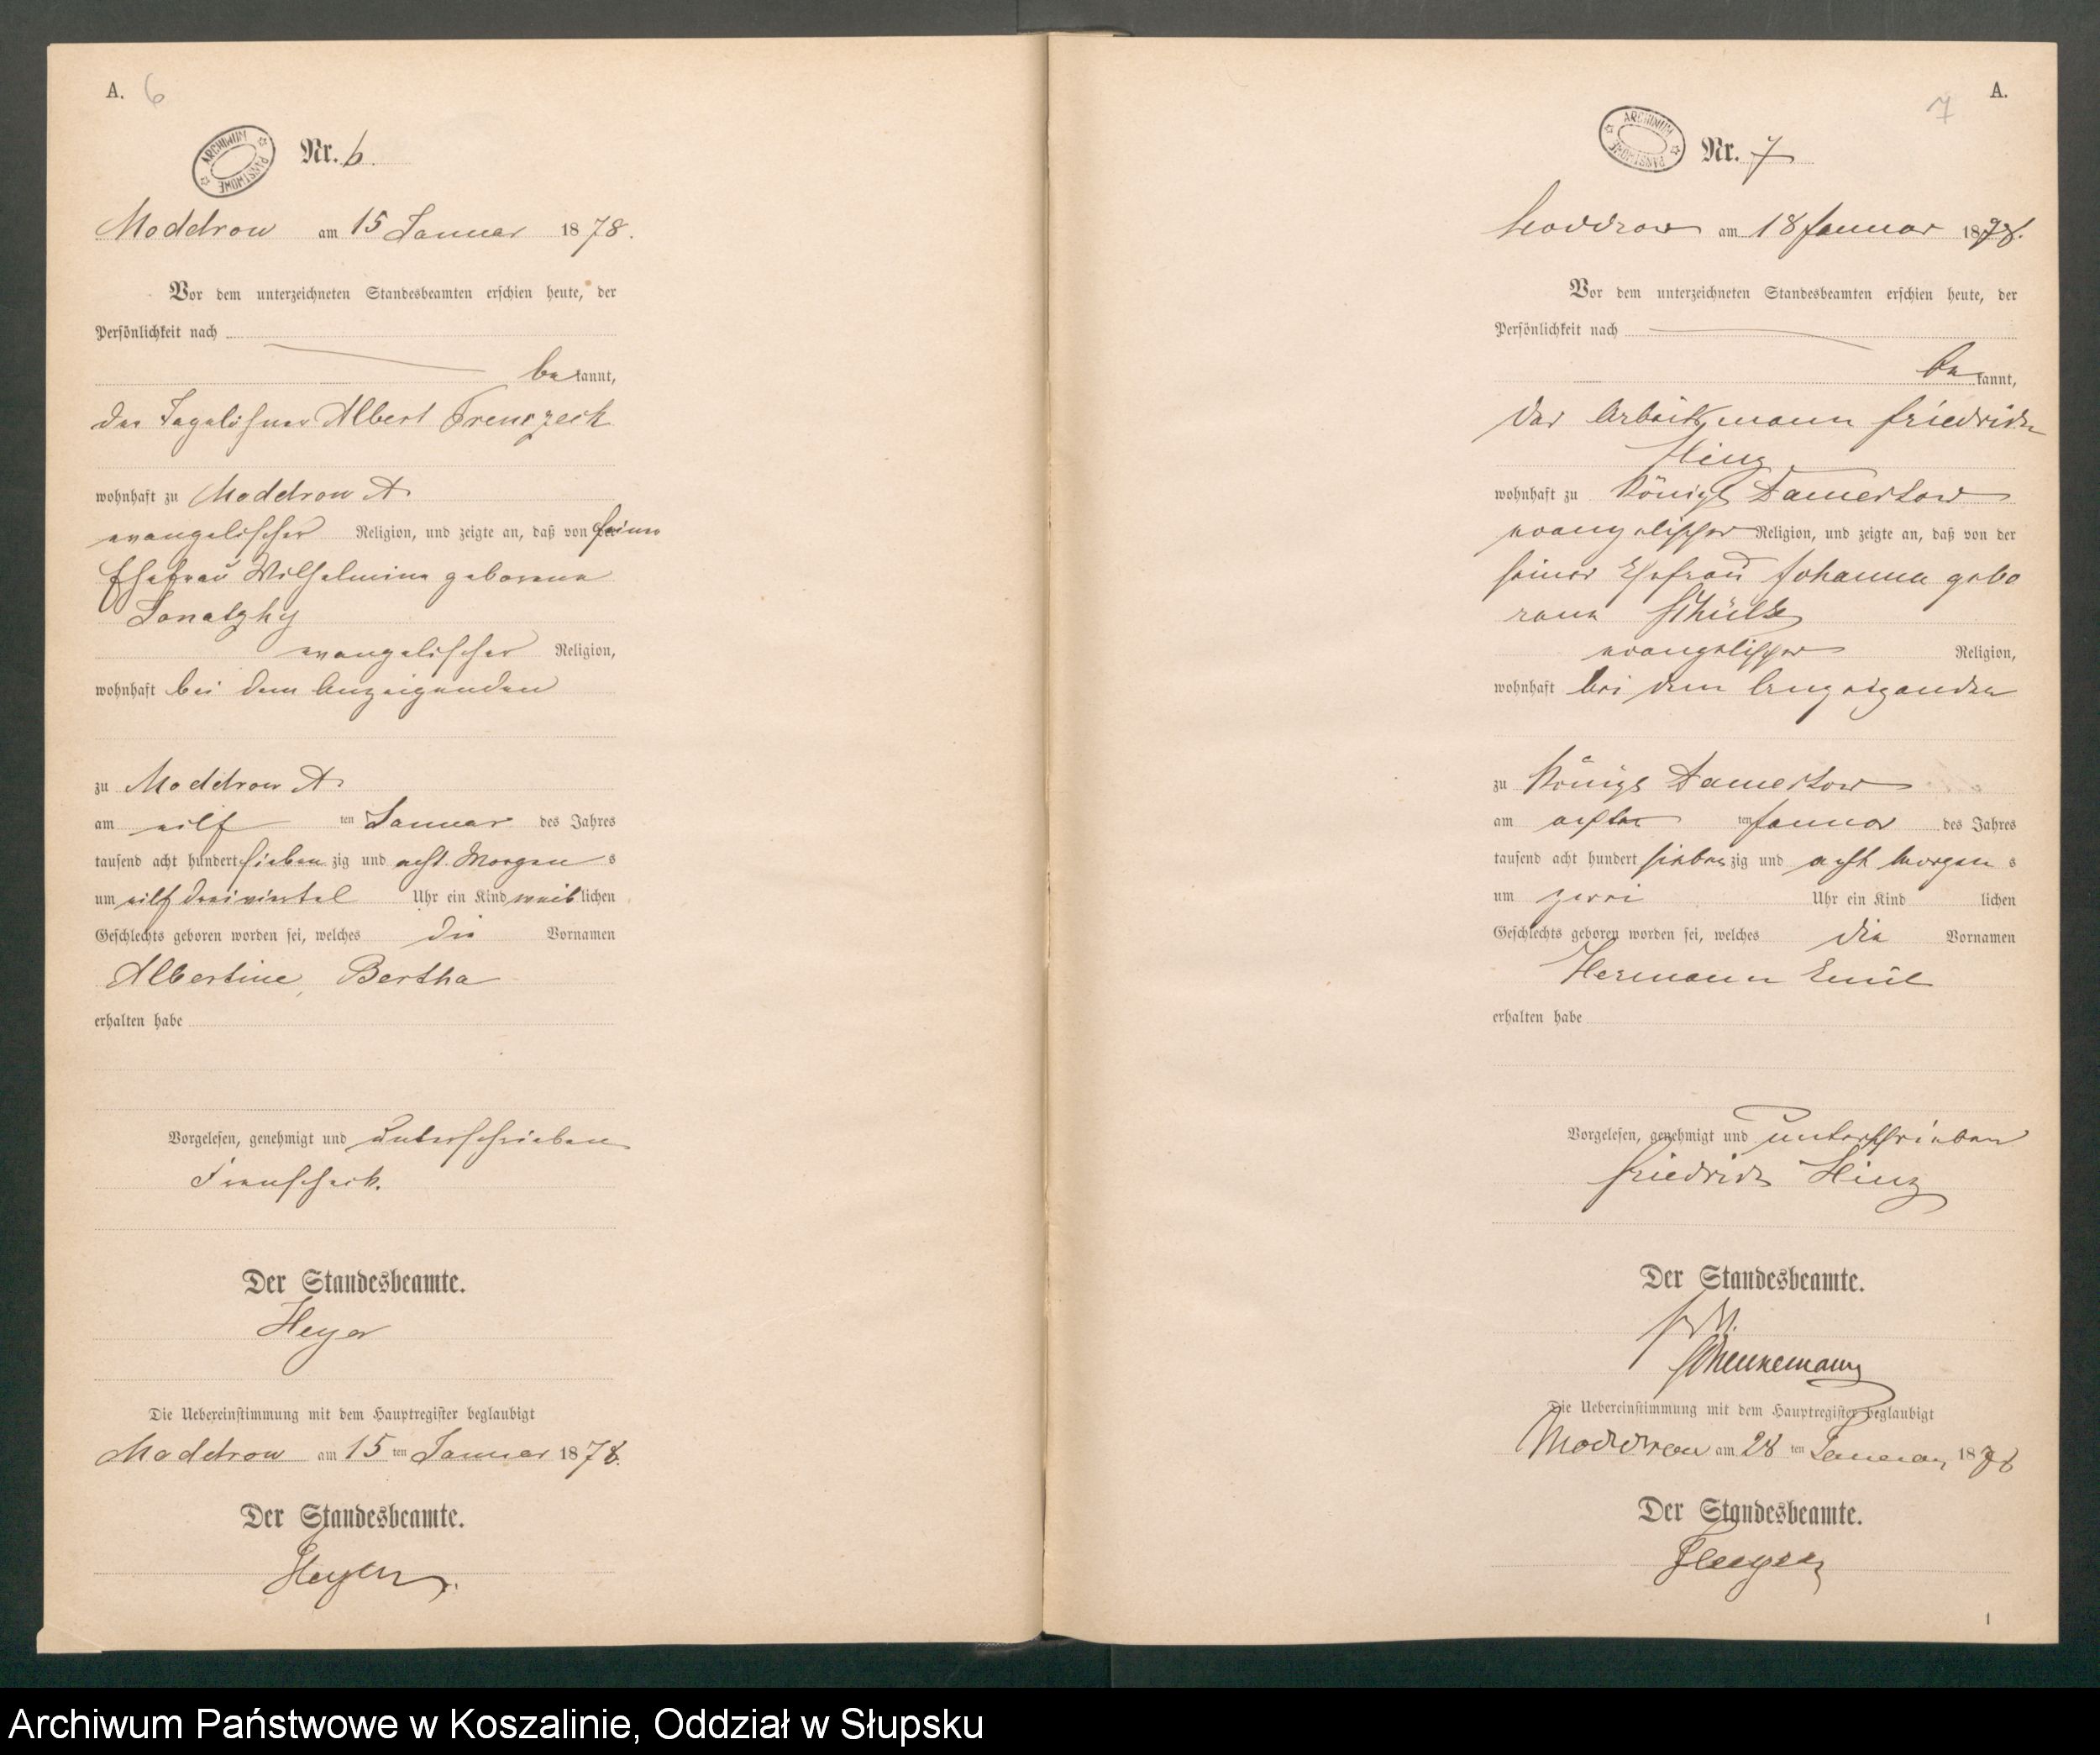 A. 6
ARCHIWUM PAŃSTWOWE
Nr. 6.
Moddrow am 15 Januar 1878.
Vor dem unterzeichneten Standesbeamten erschien heute, der
Persönlichkeit nach
bekannt,
der Tagelöhner Albert
wohnhaft zu Moddrow A
evangelischer Religion, und zeigte an, daß von der seiner
Ehefrau Wilhelmine geborene
evangelischer Religion,
wohnhaft bei dem Anzeigenden
zu Moddrow A
am eilf ten Januar des Jahres
tausend acht hundert sieben zig und acht Morgen s
um eilf dreiviertel Uhr ein Kind weiblichen
Geschlechts geboren worden sei, welches die Vornamen
Albertine, Bertha
erhalten habe
Vorgelesen, genehmigt und unterschrieben
Der Standesbeamte.
Heyer
Die Uebereinstimmung mit dem Hauptregister beglaubigt
Moddrow am 15 ten Januar 1878.
Der Standesbeamte.
Heyer.
A.
7
ARCHIWUM PAŃSTWOWE
Nr. 7
Moddrow am 18 Januar 1878.
Vor dem unterzeichneten Standesbeamten erschien heute, der
Persönlichkeit nach
bekannt,
der Arbeitsmann Friedrich
Hinz
wohnhaft zu Königl Damerkow
evangelischer Religion, und zeigte an, daß von der
seiner Ehefrau Johanna gebo
rene Schülke
evangelischer Religion,
wohnhaft bei dem Anzeigenden
zu Königl Damerkow
am achten ten Januar des Jahres
tausend acht hundert siebenzig und acht Morgen s
um zwei Uhr ein Kind lichen
Geschlechts geboren worden sei, welches die Vornamen
Hermann Emil
erhalten habe
Vorgelesen, genehmigt und unterschrieben
Friedrich Hinz
Der Standesbeamte.
Schünemann
Die Uebereinstimmung mit dem Hauptregister beglaubigt
Moddrow am 28 ten Januar 1878
Der Standesbeamte.
Heyer
1
Archiwum Państwowe w Koszalinie, Oddział w Słupsku